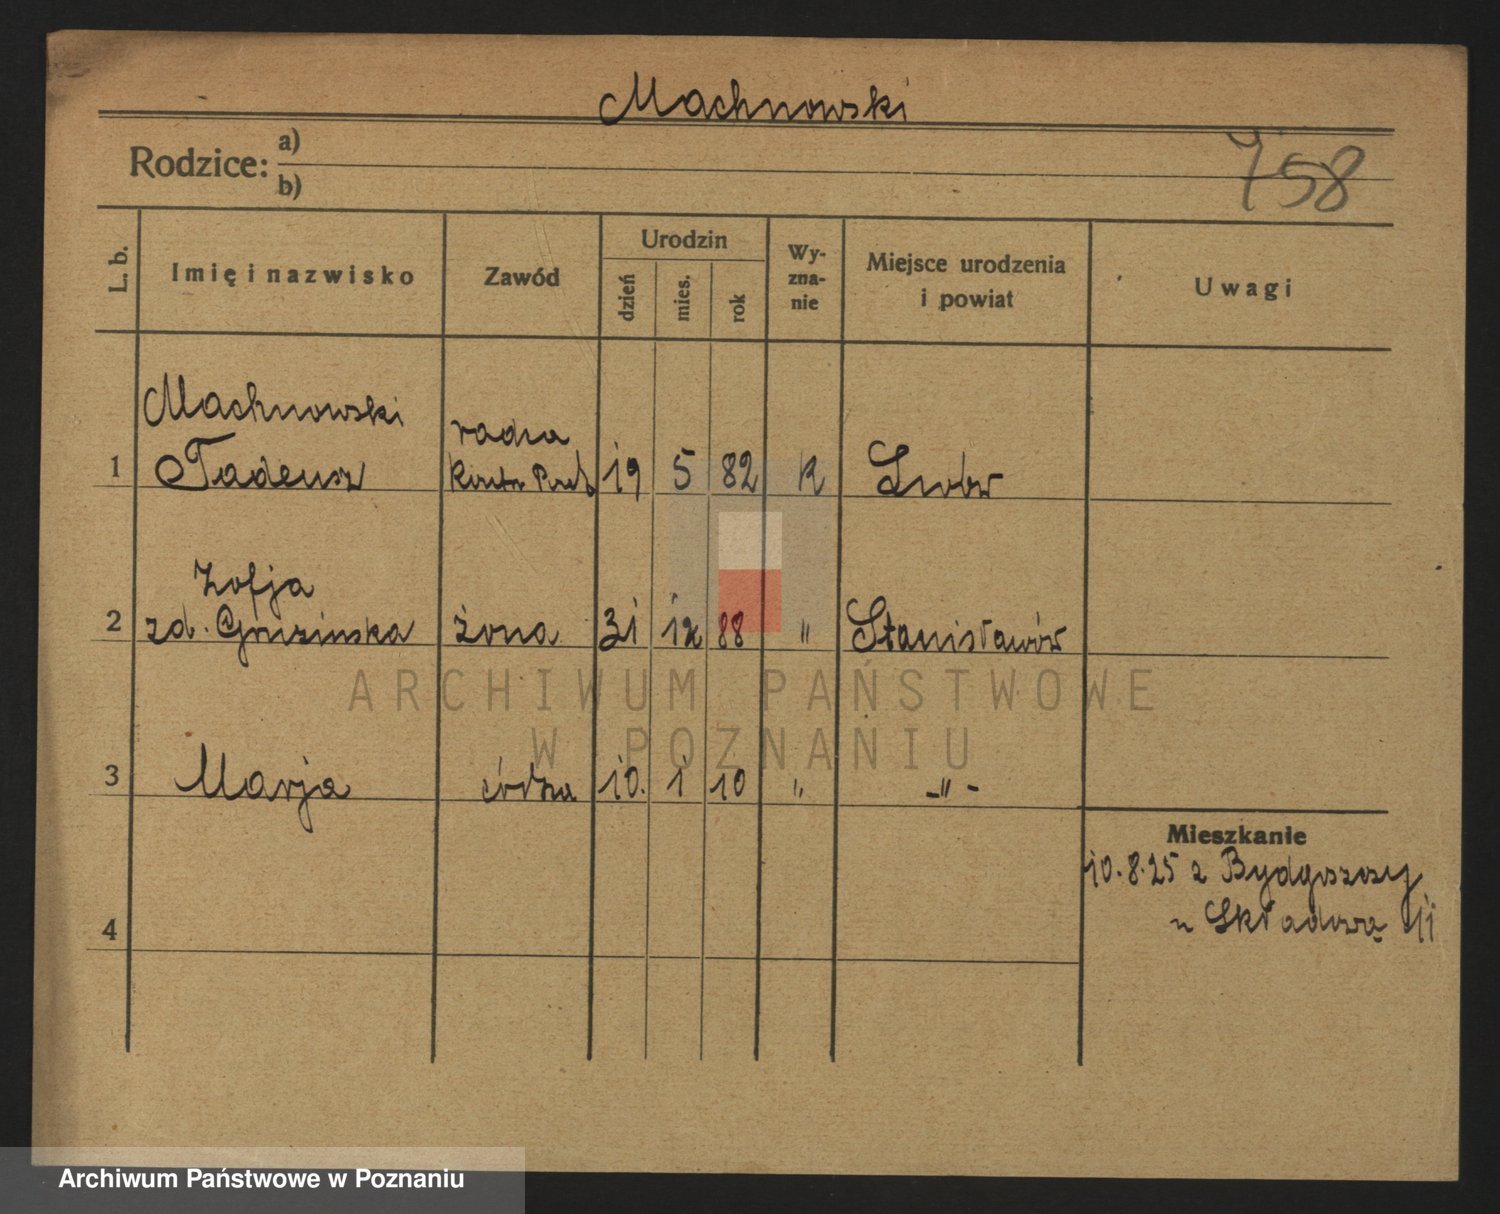 Machnowski
Rodzice: a)
b)
758
L. b.
Imię i nazwisko
Zawód
Urodzin
dzień
mies.
rok
Wy-
zna-
nie
Miejsce urodzenia
i powiat
Uwagi
Machnowski
radca
1 Tadeusz 19 5 82 K Lwów
Zofja
2 zd. żona 31 12 88 " Stanisławów
3 Marja córka 10. 1 10 " -"-
4
Mieszkanie
10.8.25 z Bydgoszczy
Składową 11
ARCHIWUM PAŃSTWOWE
W POZNANIU
Archiwum Państwowe w Poznaniu